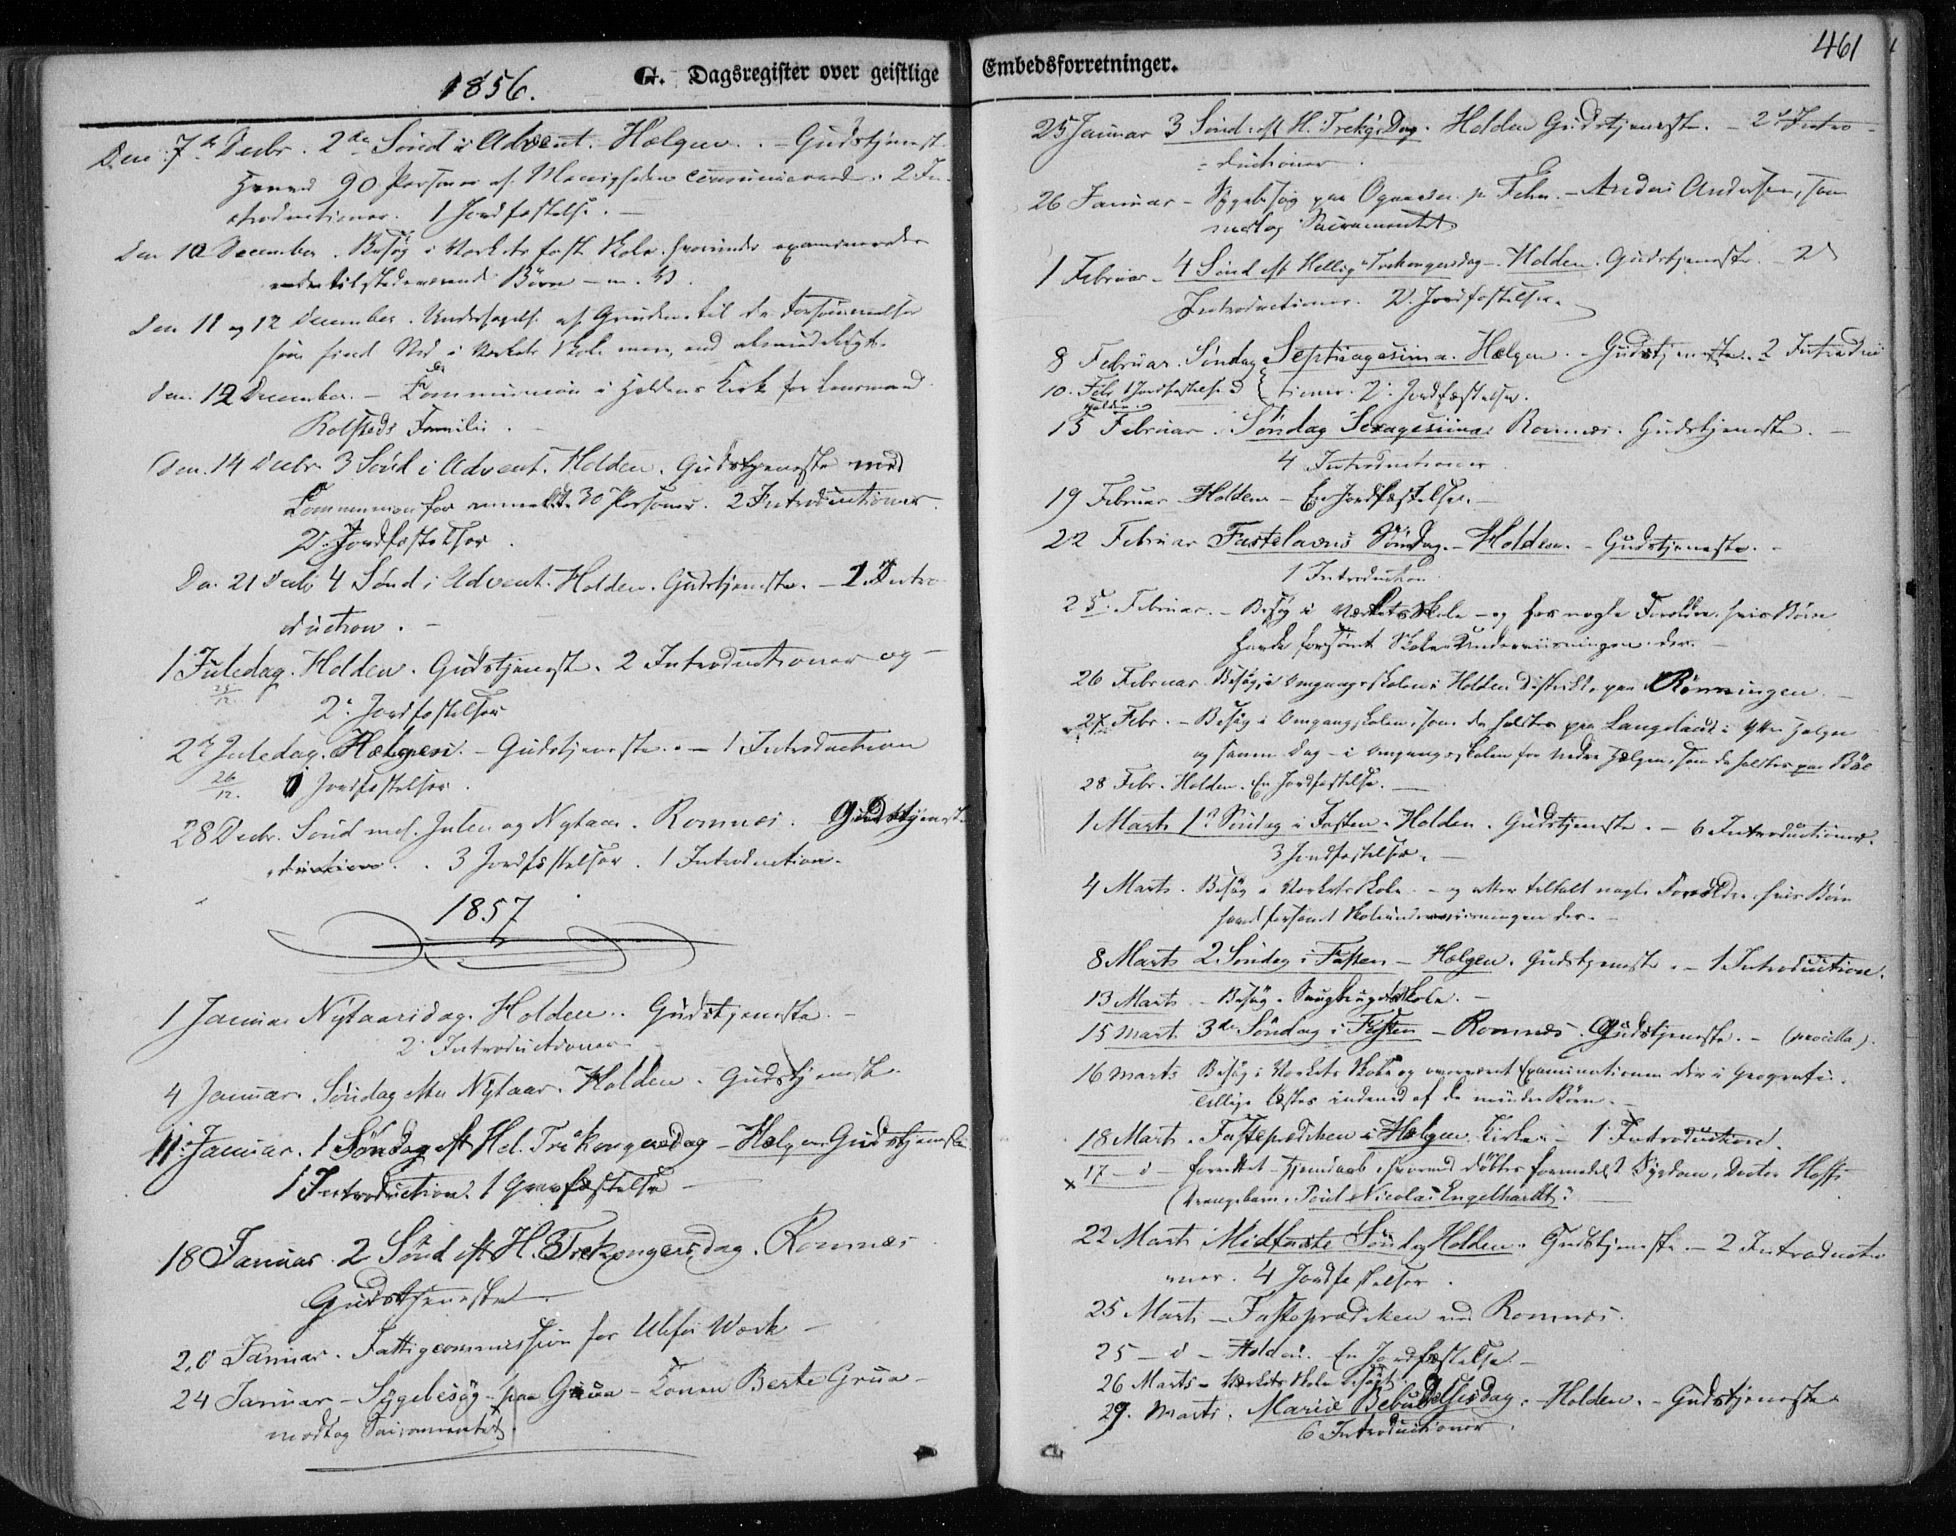 1856.
G. Dagsregister over geistlige
Den 7de Decbr. 2den Sönd i Advent. Hælgen. - Gudstjenest
hvorved 90 Personer af Menigheden communicerede. 2 In-
troductioner. 1 Jordfæstelse. -
Den 10 December. Besög i Værkets faste Skole, hvorunder examineredes
tilstedeværende Börn
Den 11 og 12 December. Undersögelse af Grunden til de Forsömmelser
som fandt Sted i Værkets Skole mere end almindeligt.
Den 12 December. - Communion i Holdens Kirke for Lensmand
Rolsteds Familie. -
Den 14 Decbr. 3 Sönd i Advent. Holden. Gudstjeneste med
Communion for anmeldte 30 Personer. 2 Introductioner.
2 Jordfæstelser.
Den 21 Decb. 4 Sönd i Advent. Holden. Gudstjeneste. - 1 Intro-
duction. -
1 Juledag. Holden. Gudstjeneste. 2 Introductioner og -
25/12 2 Jordfæstelser
2den Juledag. Hælgen. - Gudstjeneste. - 1 Introduction
26/12. Jordfæstelser.
28 Decbr. Sönd ml. Julen og Nytaar. Romnes. Gudstjenest
3 Jordfæstelser. 1 Introduction.
1857
1 Januar Nytaarsdag. Holden. Gudstjeneste. -
2 Introductioner
4 Januar. Söndag efter Nytaar. Holden. Gudstjeneste.
11 Januar. 1 Söndag eft Hel. Tre Kongersdag - Hælgen Gudstjeneste
1 Introduction. 1 Gravfæstelse -
18 Januar. 2 Sönd eft H. 3 Trekongersdag. Romnes
Gudstjeneste.
20 Januar. Fattigcommission for Ulefos Værk -
24 Januar - Sygebesög paa Grua - Konen Berte Grua -
modtog Sacramentet.
Embedsforretninger.
461
25 Januar 3 Sönd eft H. Trekg. Dag. Holden Gudstjeneste. - 2 Intro-
ductioner.
26 Januar - Sygebesög paa - Anders Andersen, som
modtog Sacramentet
1 Februar - 4 Sönd eft Hellig Trekongersdag - Holden. Gudstjeneste. - 2
Introductioner. 2 Jordfæstelser.
8 Februar. Söndag Septuagesima. Hælgen. - Gudstjeneste. 2 Introduc
10. Feb 1 Jordfæstelse i { tioner. 2 Jordfæstelser.
Holden.
15 Februar. Söndag Sexagesima. Romnes. Gudstjeneste. -
4 Introductioner
19 Februar Holden - En Jordfæstelse. -
22 Februar Fastelavns Söndag. - Holden. - Gudstjeneste. -
1 Introduction
25 Februar. - Besög i Værkets Skole - og hos nogle Forældre, hvis Börn
havde forsömt Skoleunderviisningen der. -
26 Februar. Besög i Omgangsskolen i Holden District, paa Rönningen. -
27 Febr. - Besög i Omgangsskolen, som da holdtes paa Langeland i Ytre Hælgen
og samme Dag - i Omgangsskolen for Nedre Hælgen, som da holdtes paa Böe
28 Febr. Holden. En Jordfæstelse. -
1 Marts 1ste Söndag i Fasten. Holden. Gudstjeneste. - 6 Introductioner.
3 Jordfæstelser. -
4 Marts. Besög i Værkets Skole - og atter tiltalt nogle Forældre, hvis Börn
havde forsömt Skoleunderviisningen der. -
8 Marts 2 Söndag i Fasten - Hælgen. Gudstjeneste. - 1 Introduction.
13 Marts. - Besög i Saugbrugetsskole. -
15 Mart. 3die Söndag i Fasten - Romnes. Gudstjeneste. -
16 Marts Besög i Værkets Skole og overværet Examinationen der i Geografi.
tillige læstes indenad af de mindre Börn. -
18 Marts. Fasteprædiken i Hælgen Kirke. - 1 Introduction.
x 17 - d - forrettet Hjemdaab, hvorved döbtes formedelst Sygdom, Doctor Hoffs
Drengebarn. Poul Nicolai Engelhardt.
22 Marts Midfaste Söndag Holden. Gudstjeneste. - 2 Introductio
ner. 4 Jordfæstelser.
25 Marts - Fasteprædiken ved Romnes.
25 - d - Holden. En Jordfæstelse. -
26 Marts - Værkets Skole besögt.
29. Marts. Mariæ Bebudelsesdag. Holden. - Gudstjeneste
6 Introductioner.